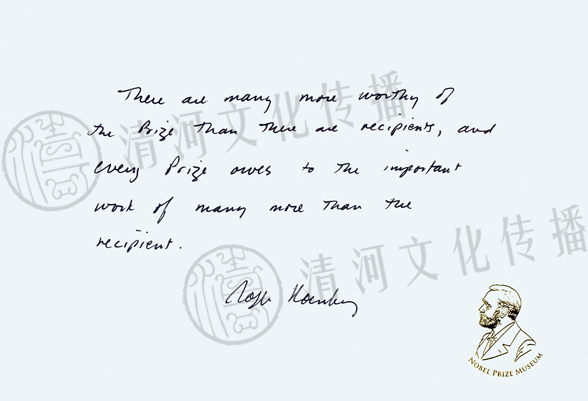 There are many more worthy of
the Prize than there are recipients, and
every Prize owes to the important
work of many more than the
recipient.
清河文化传播
清河文化传播
NOBEL PRIZE MUSEUM